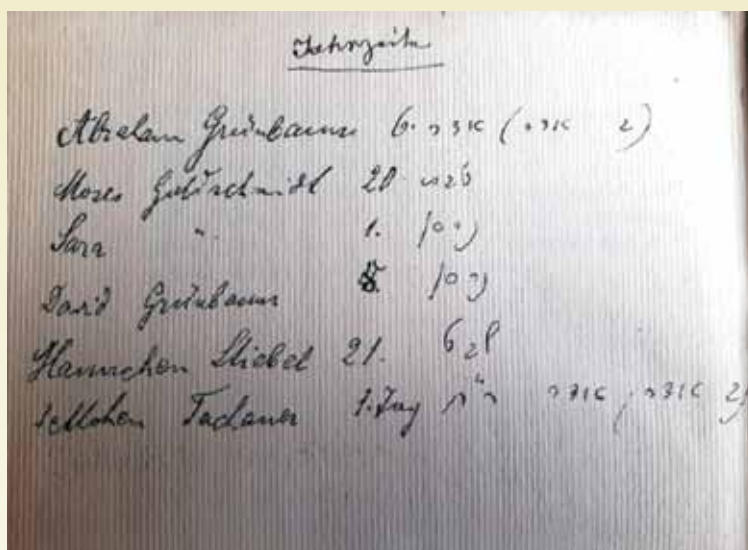 Jahrzeite
Abraham Grünbaum 6. אדר (אדר ב)
Moses Goldschmidt 20. שבט
Sara " 1. ניסן
David Grünbaum ניסן
Hannchen Stiebel 21.
Jettchen Tachauer 1. Tag ר"ח אדר, אדר ב